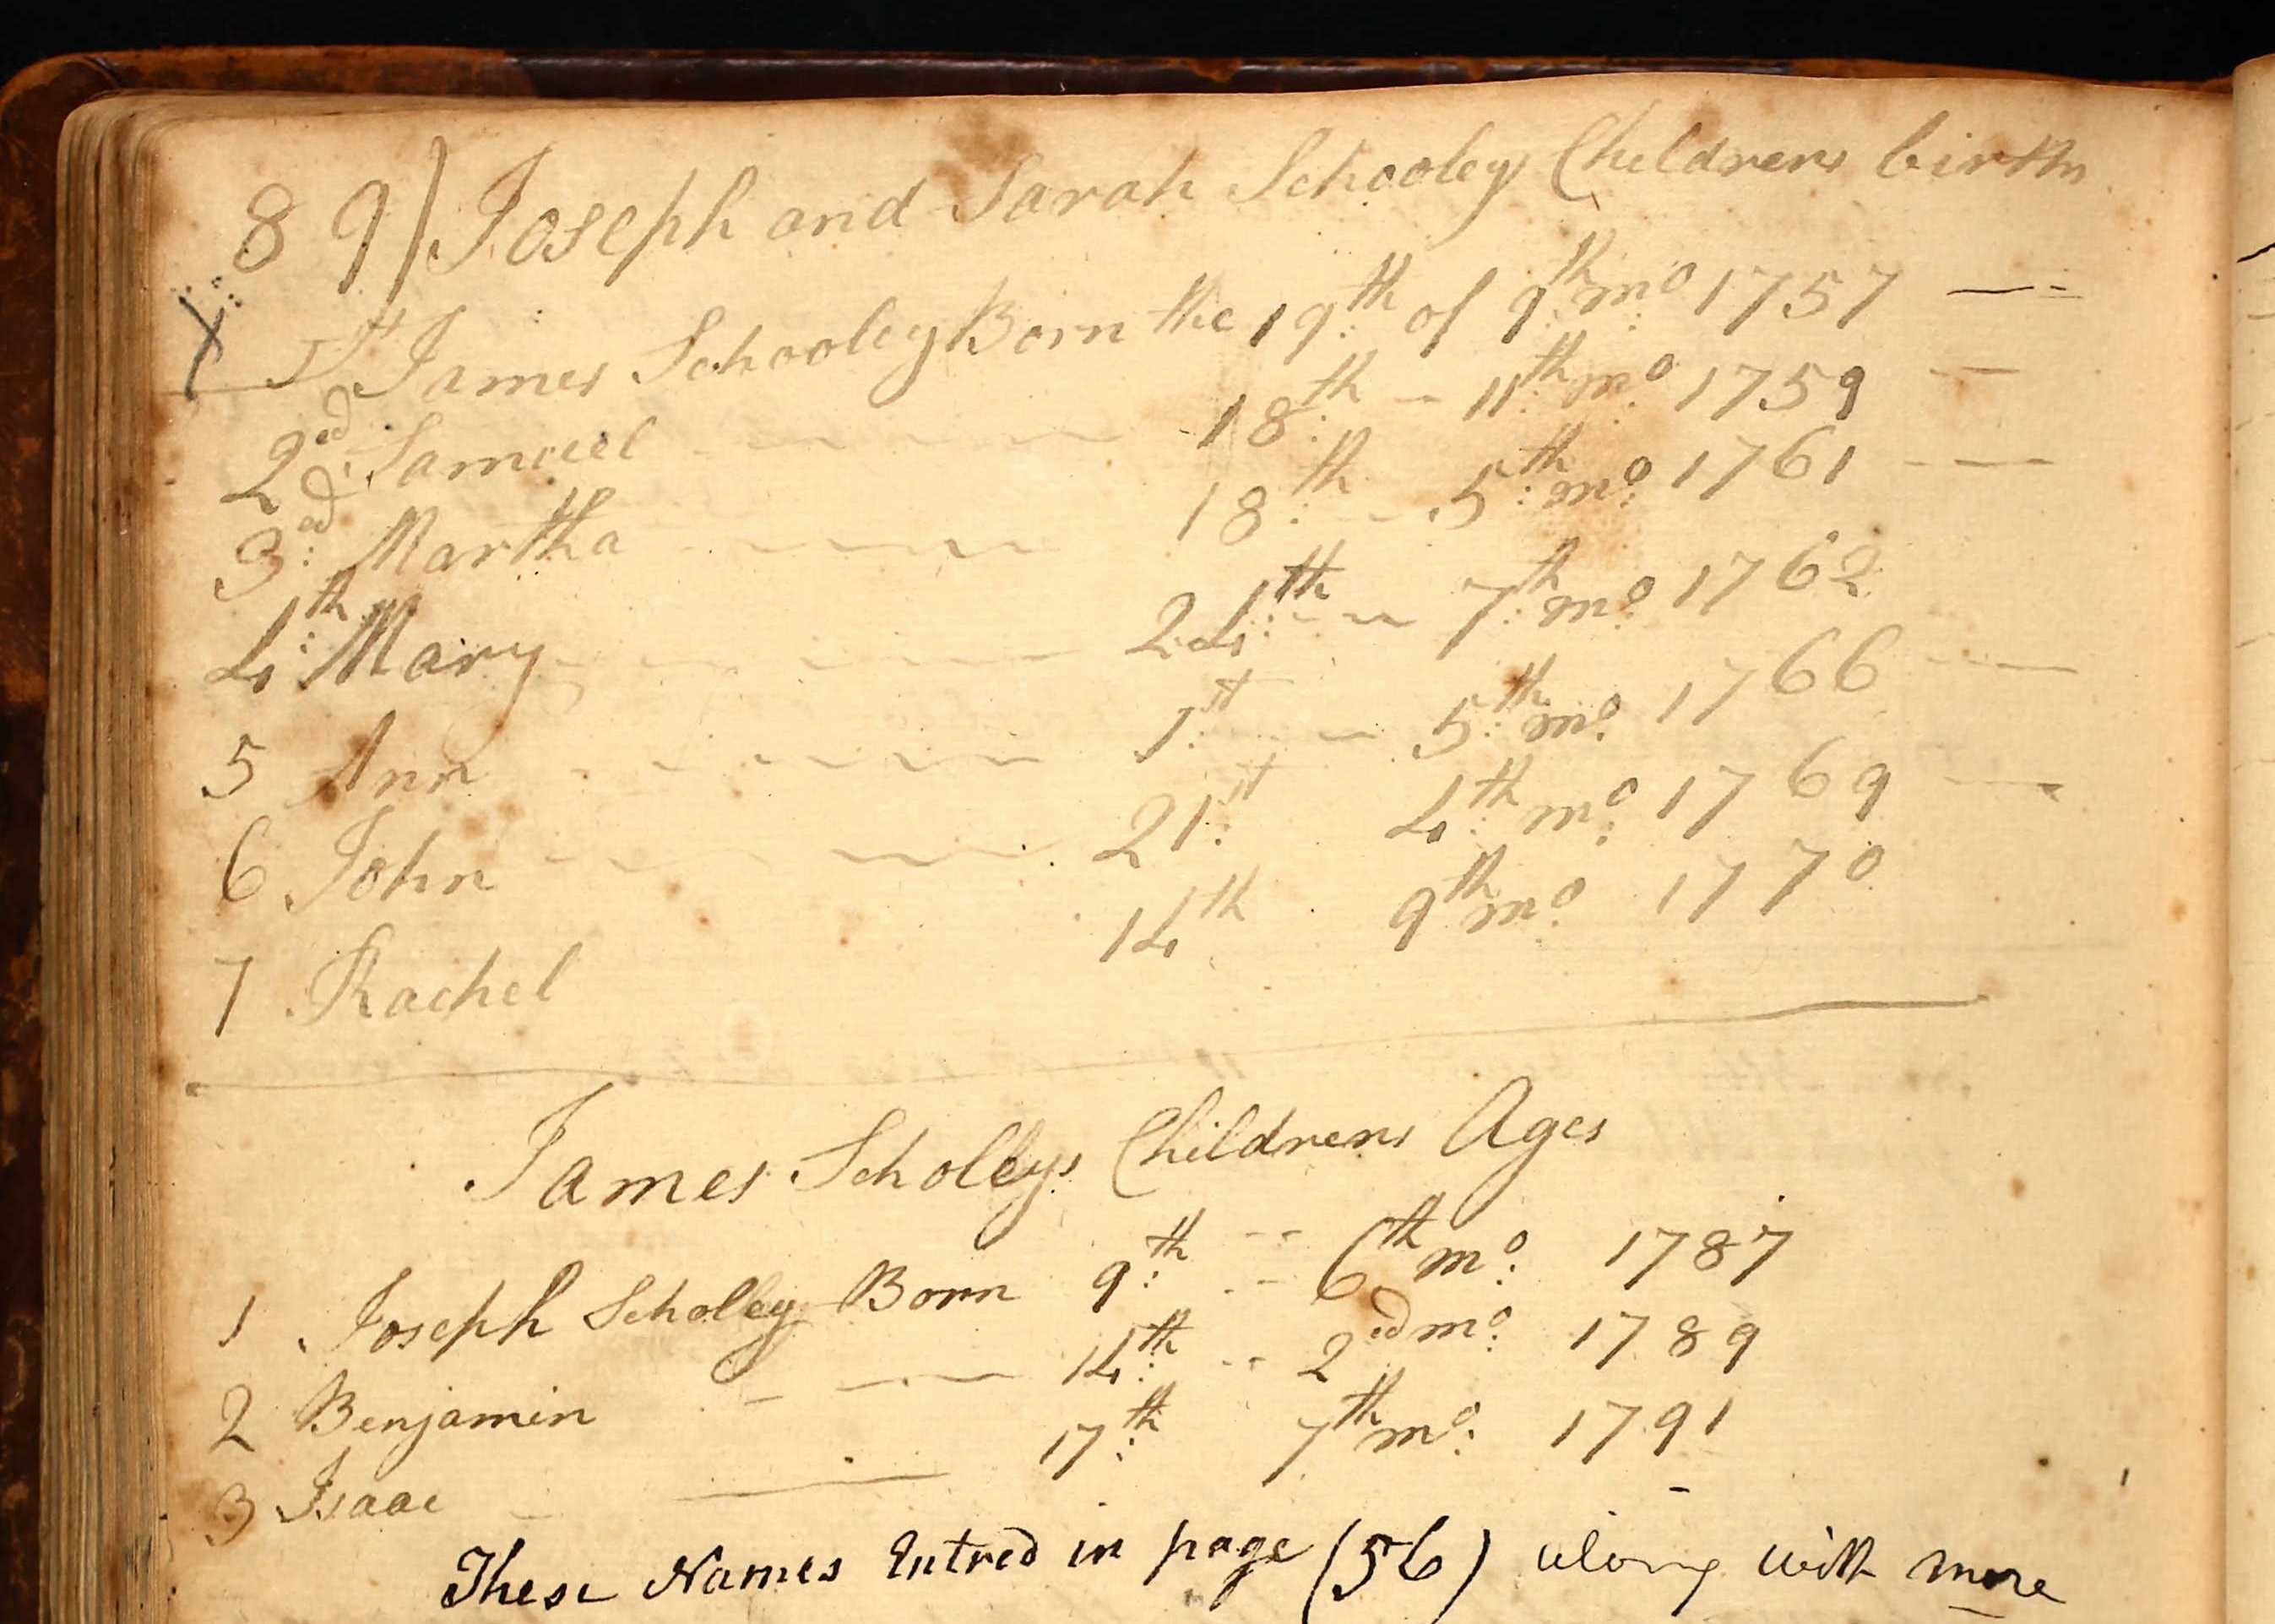 89) Joseph and Sarah Schooleys Childrens births
1st James Schooley Born the 19th of 9th mo 1757
2ed Samuel 18th 11th mo 1759
3ed Martha 18th 5th mo 1761
4th Mary 24th 7th mo 1762
5 Ann 1st 5th mo 1766
6 John 21st 4th mo 1769
7 Rachel 14th 9th mo 1770
James Scholeys Childrens Ages
1 Joseph Scholey Born 9th 6th mo 1787
2 Benjamin 14th 2ed mo 1789
3 Isaac 17th 7th mo 1791
These Names Entred in page (56) along with more